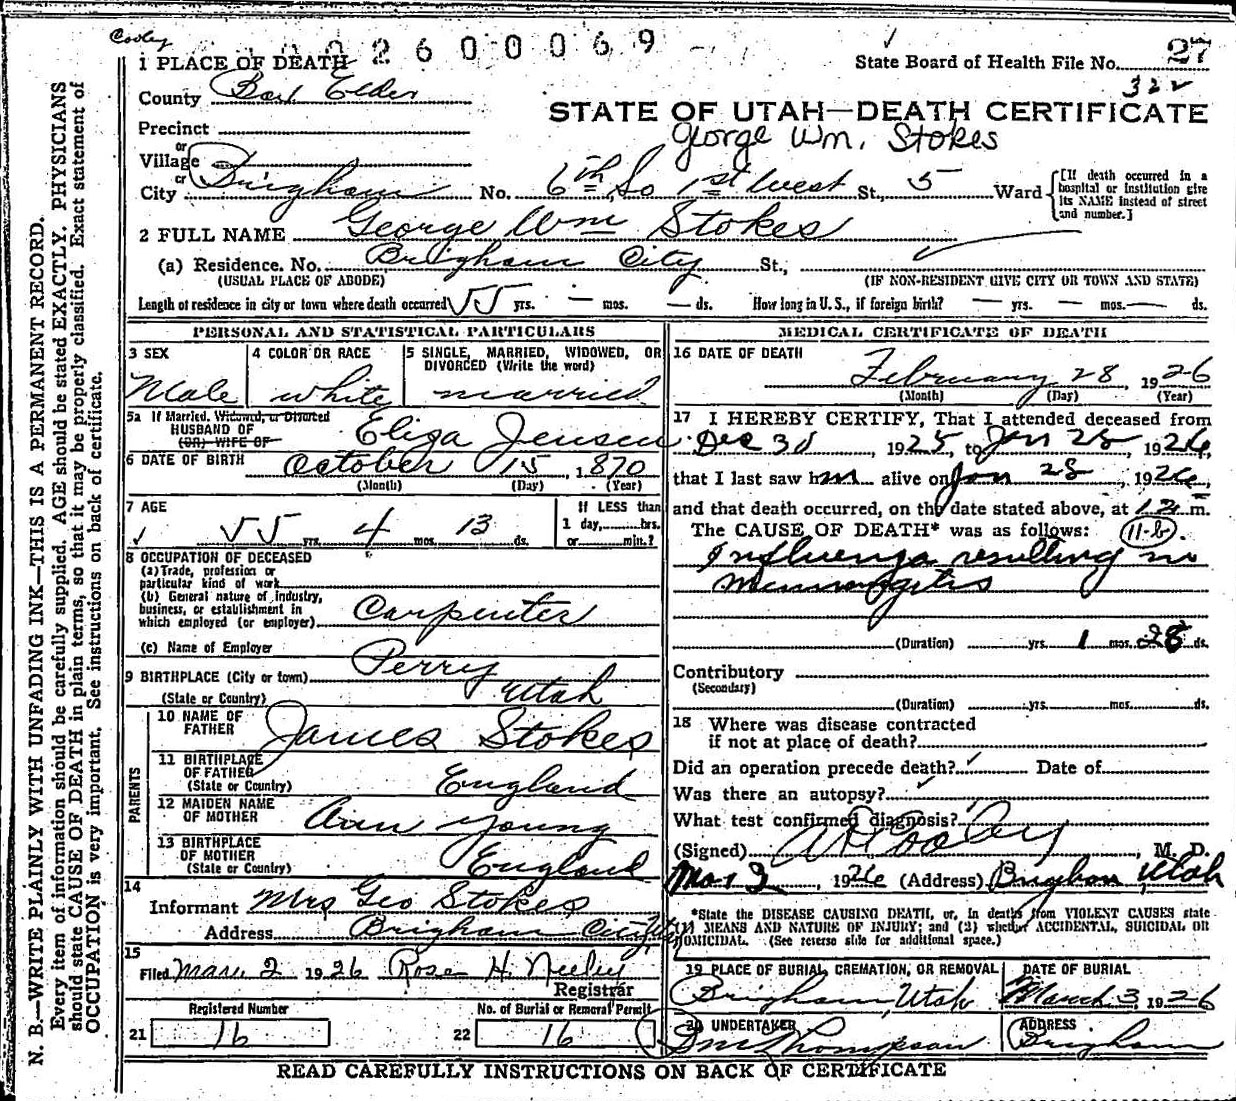 Cooley
2600069
1 PLACE OF DEATH
State Board of Health File No. 27
322
County Box Elder
STATE OF UTAH—DEATH CERTIFICATE
George Wm. Stokes
Precinct
or
Village
or
City Brigham No. 6th So 1st West St., 5 Ward
[If death occurred in a hospital or institution give its NAME instead of street and number.]
2 FULL NAME George Wm Stokes
(a) Residence. No. Brigham City St.,
(USUAL PLACE OF ABODE) (IF NON-RESIDENT GIVE CITY OR TOWN AND STATE)
Length of residence in city or town where death occurred 55 yrs. — mos. — ds. How long in U. S., if foreign birth? — yrs. — mos. — ds.
PERSONAL AND STATISTICAL PARTICULARS
3 SEX 4 COLOR OR RACE 5 SINGLE, MARRIED, WIDOWED, OR DIVORCED (Write the word)
Male white married
5a If Married, Widowed, or Divorced
HUSBAND OF
(OR) WIFE OF Eliza Jensen
6 DATE OF BIRTH October 15, 1870
(Month) (Day) (Year)
7 AGE If LESS than
55 yrs. 4 mos. 13 ds. 1 day, hrs.
or min.?
8 OCCUPATION OF DECEASED
(a) Trade, profession or
particular kind of work
(b) General nature of industry,
business, or establishment in
which employed (or employer) Carpenter
(c) Name of Employer
9 BIRTHPLACE (City or town) Perry
(State or Country) Utah
PARENTS
10 NAME OF
FATHER James Stokes
11 BIRTHPLACE
OF FATHER
(State or Country) England
12 MAIDEN NAME
OF MOTHER Ann Young
13 BIRTHPLACE
OF MOTHER
(State or Country) England
14
Informant Mrs Geo Stokes
Address Brigham City Utah
15
Filed Mar. 2 1926 Rose H. Neeley
Registrar
Registered Number No. of Burial or Removal Permit
21 16 22 16
MEDICAL CERTIFICATE OF DEATH
16 DATE OF DEATH
February 28, 1926
(Month) (Day) (Year)
17 I HEREBY CERTIFY, That I attended deceased from
Dec 30, 1925, to Jan 28, 1926,
that I last saw him alive on Jan 28, 1926,
and that death occurred, on the date stated above, at 12 m.
The CAUSE OF DEATH* was as follows: 11-b.
Influenza resulting in
(Duration) yrs. 1 mos. 28 ds.
Contributory
(Secondary)
(Duration) yrs. mos. ds.
18 Where was disease contracted
if not at place of death?
Did an operation precede death? Date of
Was there an autopsy?
What test confirmed diagnosis?
(Signed) Cooley, M. D.
Mar 2, 1926 (Address) Brigham Utah
*State the DISEASE CAUSING DEATH, or, in deaths from VIOLENT CAUSES state
(1) MEANS AND NATURE OF INJURY; and (2) whether ACCIDENTAL, SUICIDAL OR
HOMICIDAL. (See reverse side for additional space.)
19 PLACE OF BURIAL, CREMATION, OR REMOVAL DATE OF BURIAL
Brigham, Utah March 3 1926
20 UNDERTAKER ADDRESS
Thompson Brigham
READ CAREFULLY INSTRUCTIONS ON BACK OF CERTIFICATE
N. B.—WRITE PLAINLY WITH UNFADING INK—THIS IS A PERMANENT RECORD.
Every item of information should be carefully supplied. AGE should be stated EXACTLY. PHYSICIANS
should state CAUSE OF DEATH in plain terms, so that it may be properly classified. Exact statement of
OCCUPATION is very important. See instructions on back of certificate.